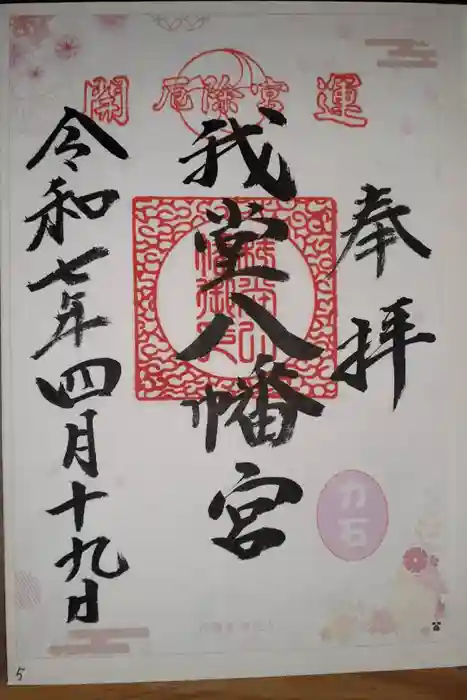 開 厄除宮 運
奉拝
我堂八幡宮
令和七年四月十九日
力石
5